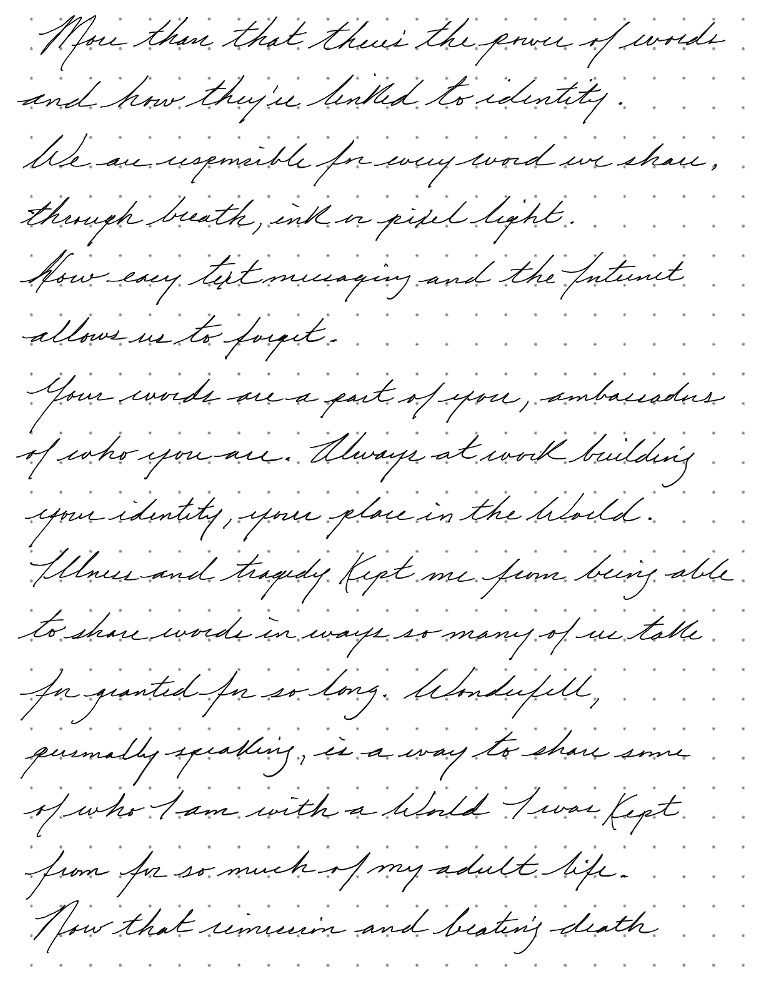 More than that there's the power of words
and how they're linked to identity.
We are responsible for every word we share,
through breath, ink or pixel light.
How easy text messaging and the Internet
allows us to forget.
Your words are a part of you, ambassadors
of who you are. Always at work building
your identity, your place in the World.
Illness and tragedy Kept me from being able
to share words in ways so many of us take
for granted for so long. Wonderfull,
personally speaking, is a way to share some
of who I am with a World I was Kept
from for so much of my adult life.
Now that remission and beating death